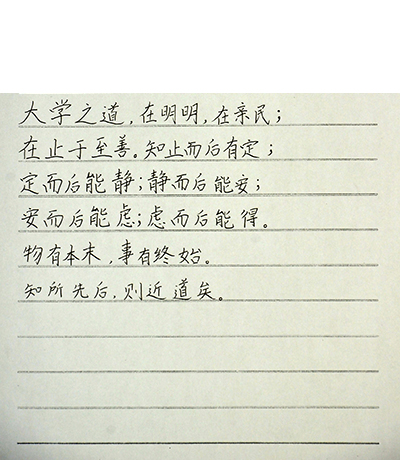 大学之道，在明明，在亲民；
在止于至善。知止而后有定；
定而后能静；静而后能安；
安而后能虑；虑而后能得。
物有本末，事有终始。
知所先后，则近道矣。